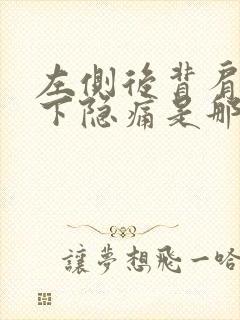 左側後背肩
下隐痛是哪
讓夢想飛一哈